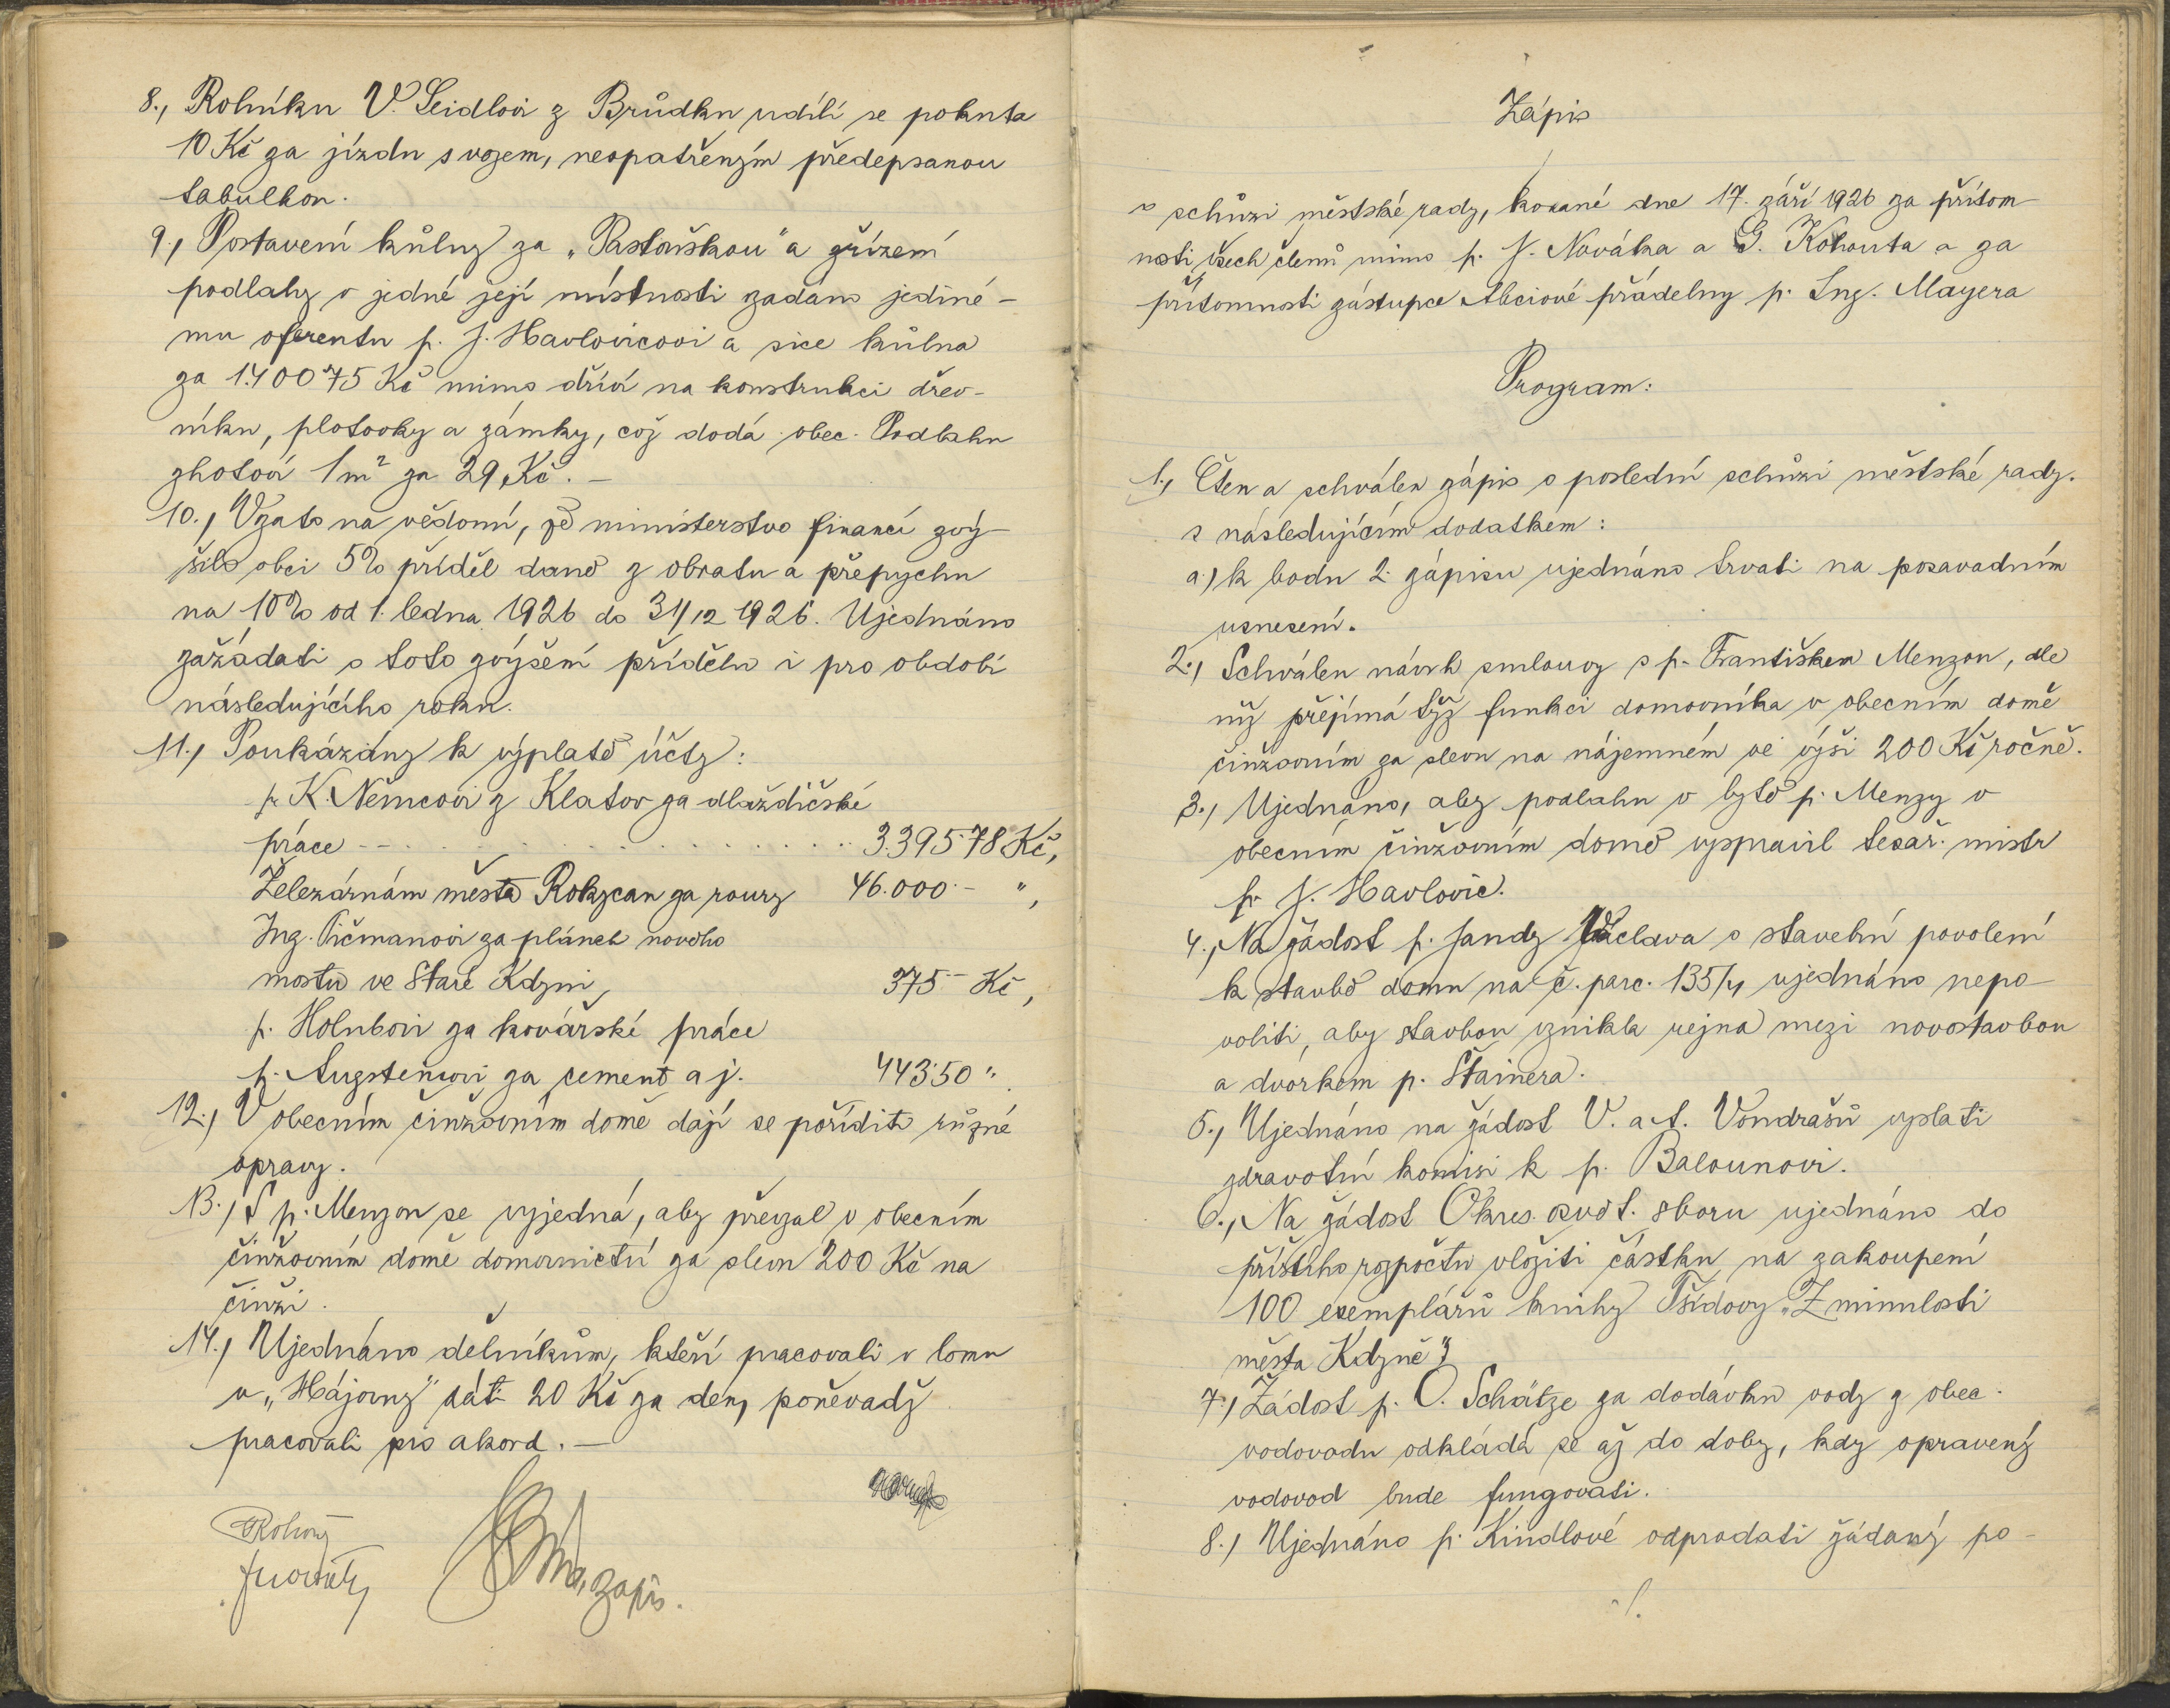 8., Rolníku V. Seidlovi z Brůdku udílí se pokuta
10 Kč za jízdu s vozem, neopatřeným předepsanou
tabulkou.
9., Postavení kůlny za „Pastouškou" a zřízení
podlahy v jedné její místnosti zadáno jediné-
mu oferentu p. J. Havlovicovi a sice kůlna
za 1.400˙75 Kč mimo dříví na konstrukci dřev-
níku, plotovky a zámky, což dodá obec. Podlahu
zhotoví 1m² za 29 Kč. –
10., Vzato na vědomí, že ministerstvo financí zvý-
šilo obci 5% příděl daně z obratu a přepychu
na 10% od 1. ledna 1926 do 31/12 1926. Ujednáno
zažádati o toto zvýšení přídělu i pro období
následujícího roku.
11., Poukázány k výplatě účty:
p. K. Němcovi z Klatov za dlaždičské
práce - - . . . . . . . . . . . . 3.395˙78 Kč,
Železárnám města Rokycan za roury 46.000˙– ",
Ing. Pičmanovi za plánek nového
mostu ve Staré Kdyni 375˙– Kč,
p. Holubovi za kovářské práce
p. Augstenovi za cement a j. 443˙50 "
12., V obecním činžovním domě dají se poříditi různé
opravy.
13., S p. Menzou se vyjedná, aby převzal v obecním
činžovním domě domovnictví za slevu 200 Kč na
činži.
14., Ujednáno dělníkům, kteří pracovali v lomu
u „Hájovny" dáti 20 Kč za den, poněvadž
pracovali pro akord. –
zapis.
Zápis
o schůzi městské rady, konané dne 17. září 1926 za přítom-
nosti všech členů mimo p. J. Nováka a G. Kohouta a za
přítomnosti zástupce Akciové přádelny p. Ing. Mayera
Program:
1., Čten a schválen zápis o poslední schůzi městské rady.
s následujícím dodatkem:
a.) k bodu 2. zápisu ujednáno trvati na posavadním
usnesení.
2., Schválen návrh smlouvy s p. Františkem Menzou, dle
níž přejímá týž funkci domovníka v obecním domě
činžovním za slevu na nájemném ve výši 200 Kč ročně.
3., Ujednáno, aby podlahu v bytě p. Menzy v
obecním činžovním domě vyspravil tesař. mistr
p. J. Havlovic.
4., Na žádost p. Jandy Václava o stavební povolení
k stavbě domu na č. parc. 135/4 ujednáno nepo-
voliti, aby stavbou vznikla rejna mezi novostavbou
a dvorkem p. Štainera.
5., Ujednáno na žádost V. a A. Vondrašů vyslati
zdravotní komisi k p. Balounovi.
6., Na žádost Okres. osvět. sboru ujednáno do
příštího rozpočtu vložiti částku na zakoupení
100 exemplářů knihy Tšídovy „Z minulosti
města Kdyně".
7., Žádost p. O. Schätze za dodávku vody z obec.
vodovodu odkládá se až do doby, kdy opravený
vodovod bude fungovati.
8.) Ujednáno p. Kindlové odprodati žádaný po-
./.